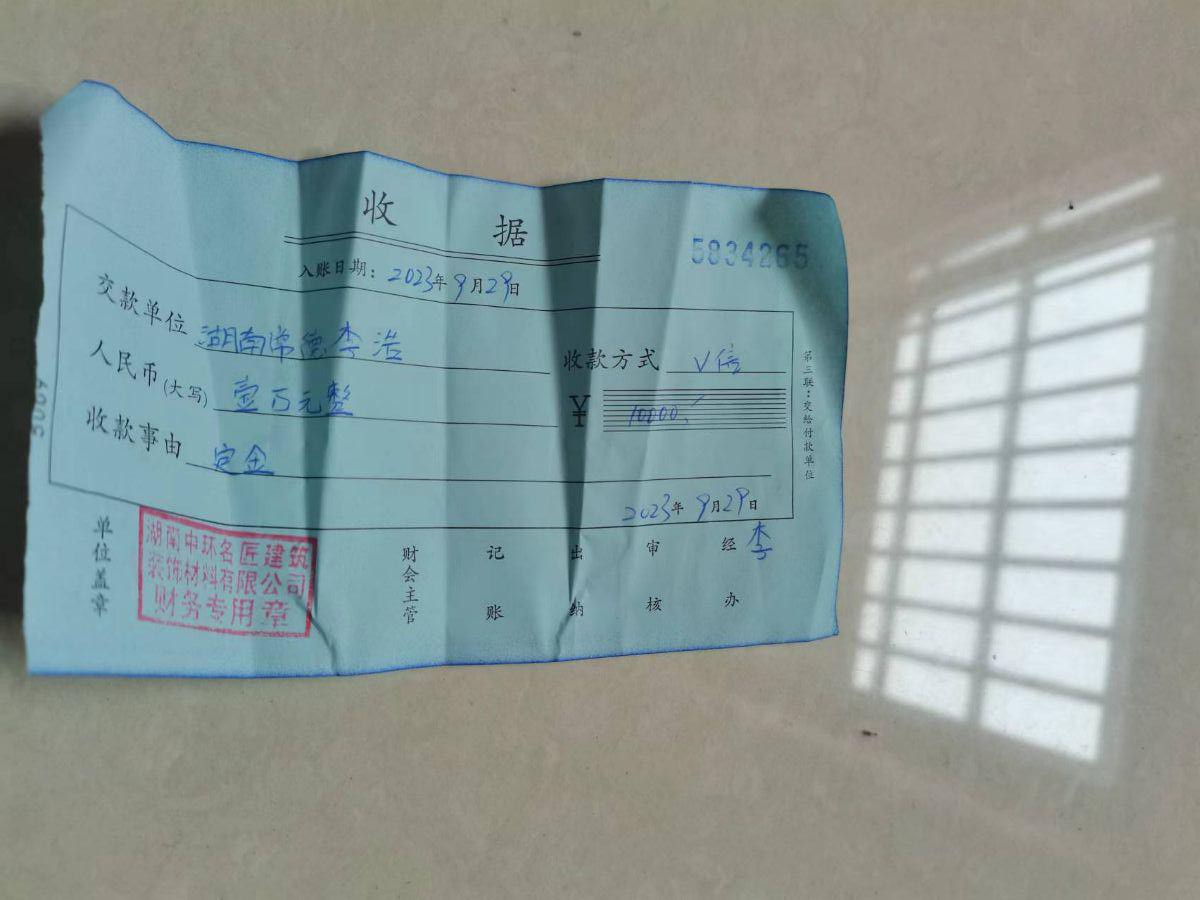 收 据
5834265
入账日期：2023年9月29日
交款单位 湖南常德李浩 收款方式 V信
人民币(大写) 壹万元整 ￥ 10000.
收款事由 定金
2023年9月29日
第三联：交给付款单位
单位盖章 财会主管 记账 出纳 审核 经办 李
湖南中环名匠建筑
装饰材料有限公司
财务专用章